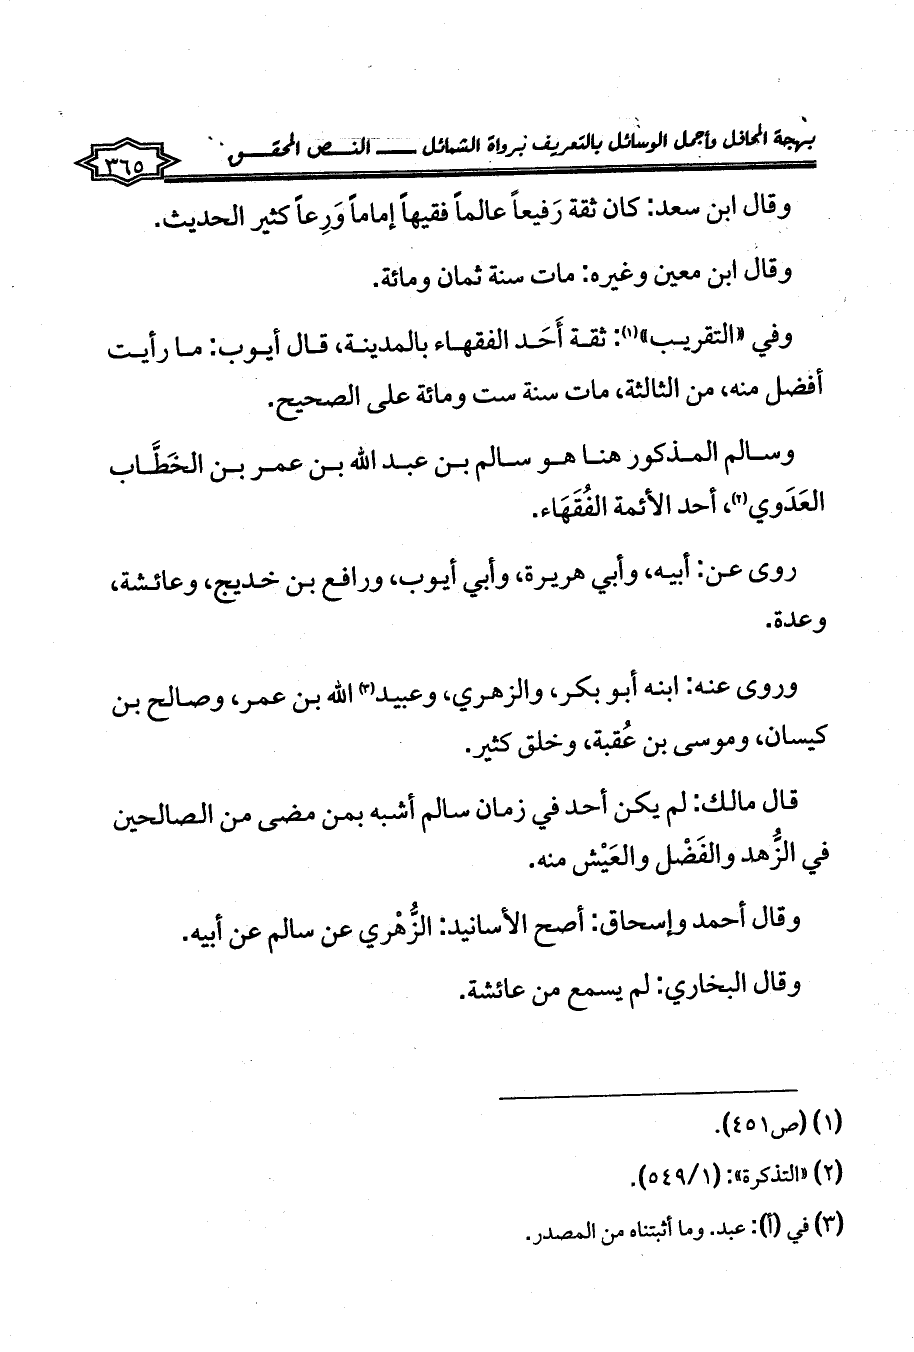 بهجة المحافل وأجمل الوسائل بالتعريف برواة الشمائل ـــــ النـــص المحقـــق
٣٦٥
وقال ابن سعد: كان ثقة رَفيعاً عالماً فقيهاً إماماً وَرِعاً كثير الحديث.
وقال ابن معين وغيره: مات سنة ثمان ومائة.
وفي «التقريب»(١): ثقة أَحَد الفقهاء بالمدينة، قال أيوب: ما رأيت
أفضل منه، من الثالثة، مات سنة ست ومائة على الصحيح.
وسالم المذكور هنا هو سالم بن عبد الله بن عمر بن الخَطَّاب
العَدَوي(٢)، أحد الأئمة الفُقَهَاء.
روى عن: أبيه، وأبي هريرة، وأبي أيوب، ورافع بن خديج، وعائشة،
وعدة.
وروى عنه: ابنه أبو بكر، والزهري، وعبيد(٣) الله بن عمر، وصالح بن
كيسان، وموسى بن عُقبة، وخلق كثير.
قال مالك: لم يكن أحد في زمان سالم أشبه بمن مضى من الصالحين
في الزُّهد والفَضْل والعَيْش منه.
وقال أحمد وإسحاق: أصح الأسانيد: الزُّهْري عن سالم عن أبيه.
وقال البخاري: لم يسمع من عائشة.
(١) (ص٤٥١).
(٢) «التذكرة»: (٥٤٩/١).
(٣) في (أ): عبد. وما أثبتناه من المصدر.